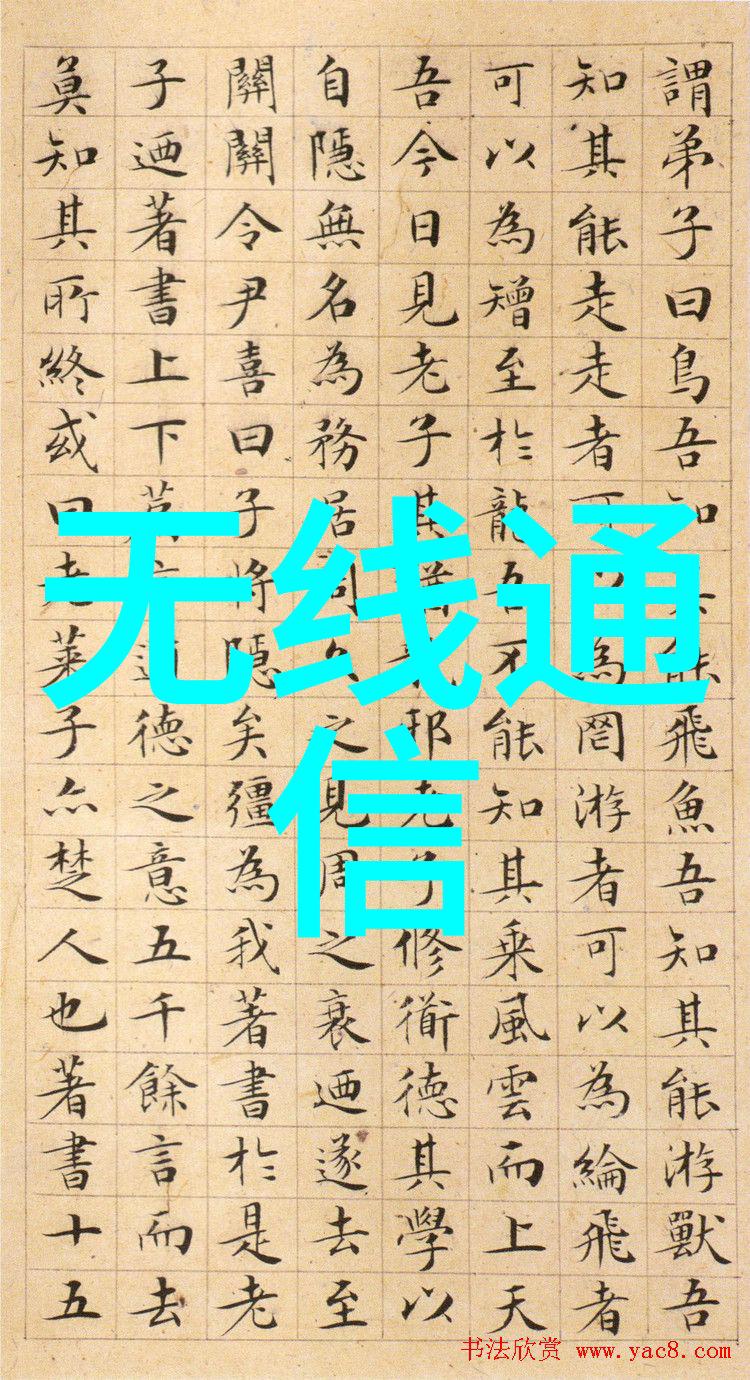 謂弟子曰鳥吾知其能飛魚吾知其能游獸吾
知其能走走者可以為罔游者可以為綸飛者
可以為矰至於龍吾不能知其乘風雲而上天
吾今日見老子其猶龍邪老子修衟德其學以
自隱無名為務居周久之見周之衰迺遂去至
關關令尹喜曰子將隱矣彊為我著書於是老
子迺著書上下篇言道德之意五千餘言而去
莫知其所終或曰老萊子亦楚人也著書十五
无线通
信
书法欣赏 www.yac8.com